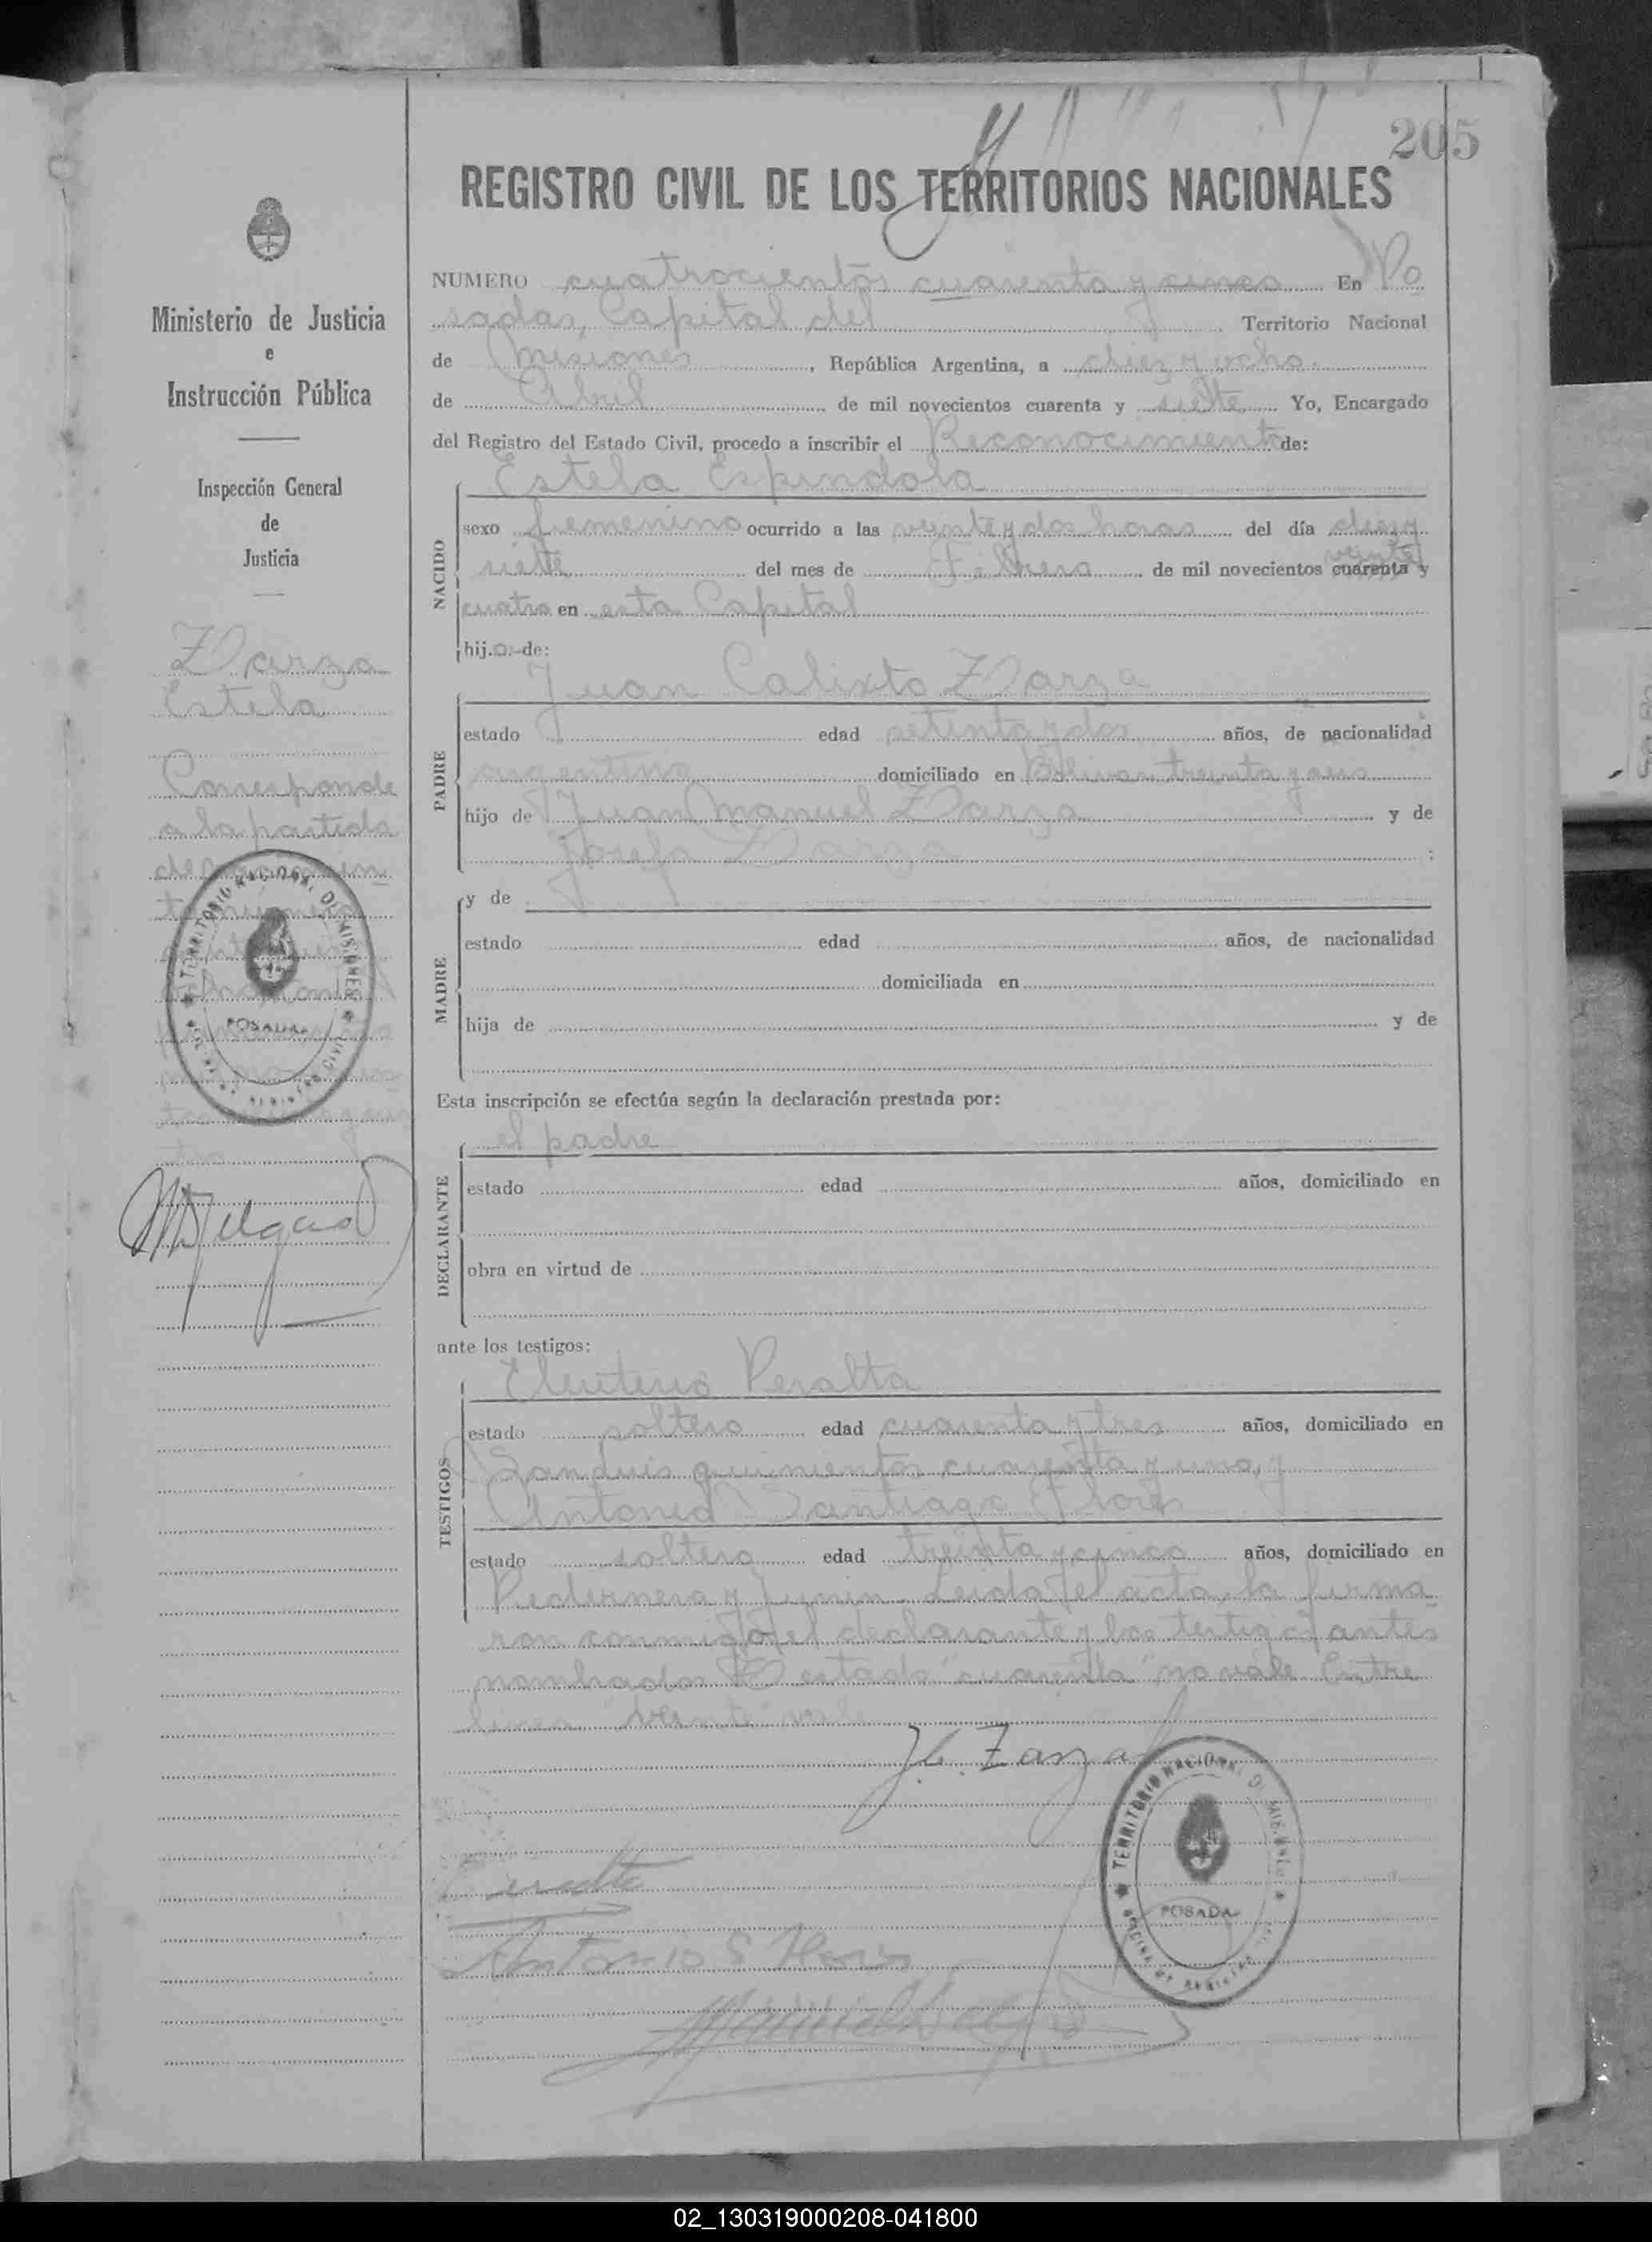 205
REGISTRO CIVIL DE LOS TERRITORIOS NACIONALES
Ministerio de Justicia
e
Instrucción Pública
Inspección General
de
Justicia
Zarza
Estela
Corresponde
a la partida
TERRITORIO NACIONAL DE MISIONES
POSADAS
NUMERO cuatrocientos cuarenta y cinco En Po
sadas, Capital del Territorio Nacional
de Misiones, República Argentina, a diez y ocho
de Abril de mil novecientos cuarenta y siete Yo, Encargado
del Registro del Estado Civil, procedo a inscribir el Reconocimiento de:
Estela Espindola
NACIDO
sexo femenino ocurrido a las veinte y dos horas del día diez y
siete del mes de Febrero de mil novecientos cuarenta veinte y
cuatro en esta Capital
hija de:
Juan Calixto Zarza
PADRE
estado edad setenta y dos años, de nacionalidad
argentino domiciliado en Bolivar treinta y seis
hijo de Juan Manuel Zarza y de
Josefa Zarza ;
MADRE
y de
estado edad años, de nacionalidad
domiciliada en
hija de y de
Esta inscripción se efectúa según la declaración prestada por:
el padre
DECLARANTE
estado edad años, domiciliado en
obra en virtud de
ante los testigos:
Eleuterio Peralta
TESTIGOS
estado soltero edad cuarenta y tres años, domiciliado en
San Luis quinientos cuarenta y uno, y
Antonio Santiago Flores
estado soltero edad treinta y cinco años, domiciliado en
Pedernera y Junin. Leida el acta, la firma
ron conmigo, el declarante y los testigos antes
nombrados "cuarenta" no vale Entre
lineas "veinte" vale
J. C. Zarza
TERRITORIO NACIONAL DE MISIONES
POSADAS
Peralta
Antonio S Flores
02_130319000208-041800